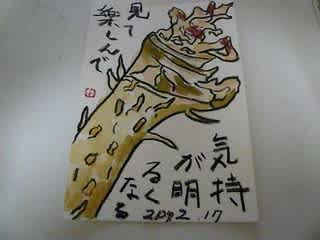 見て
楽しんで
気持
が明
るく
なる